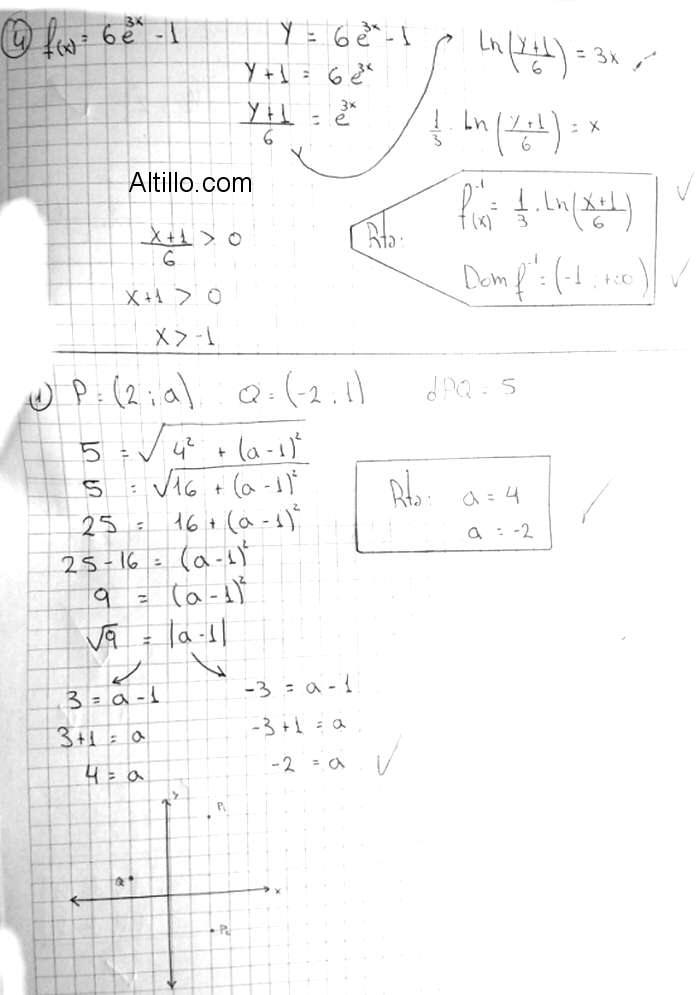 4) f(x) = 6e^{3x} - 1
y = 6e^{3x} - 1
y + 1 = 6e^{3x}
\frac{y+1}{6} = e^{3x}
Ln(\frac{y+1}{6}) = 3x
\frac{1}{3} · Ln(\frac{y+1}{6}) = x
Altillo.com
\frac{x+1}{6} > 0
x+1 > 0
x > -1
Rta: f^{-1}(x) = \frac{1}{3} · Ln(\frac{x+1}{6})
Dom f^{-1} = (-1 ; +∞)
1) P = (2 ; a) Q = (-2 ; 1) dPQ = 5
5 = √(4² + (a-1)²)
5 = √(16 + (a-1)²)
25 = 16 + (a-1)²
25 - 16 = (a-1)²
9 = (a-1)²
√9 = |a-1|
3 = a-1
3+1 = a
4 = a
-3 = a-1
-3+1 = a
-2 = a
Rta: a = 4
a = -2
y
P1
Q
x
P2